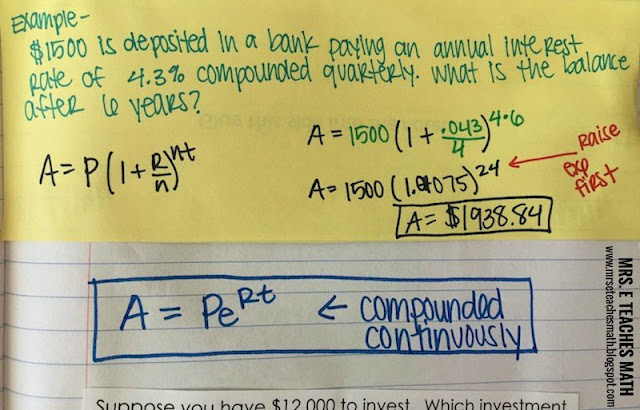 Example-
$1500 is deposited in a bank paying an annual interest
rate of 4.3% compounded quarterly. What is the balance
after 6 years?
A = P(1 + R/n)^nt
A = 1500(1 + .043/4)^4·6
A = 1500(1.01075)^24
raise
exp
first
A = $1938.84
A = Pe^Rt ← compounded
continuously
MRS. E TEACHES MATH
www.mrseteachesmath.blogspot.com
Suppose you have $12,000 to invest. Which investment